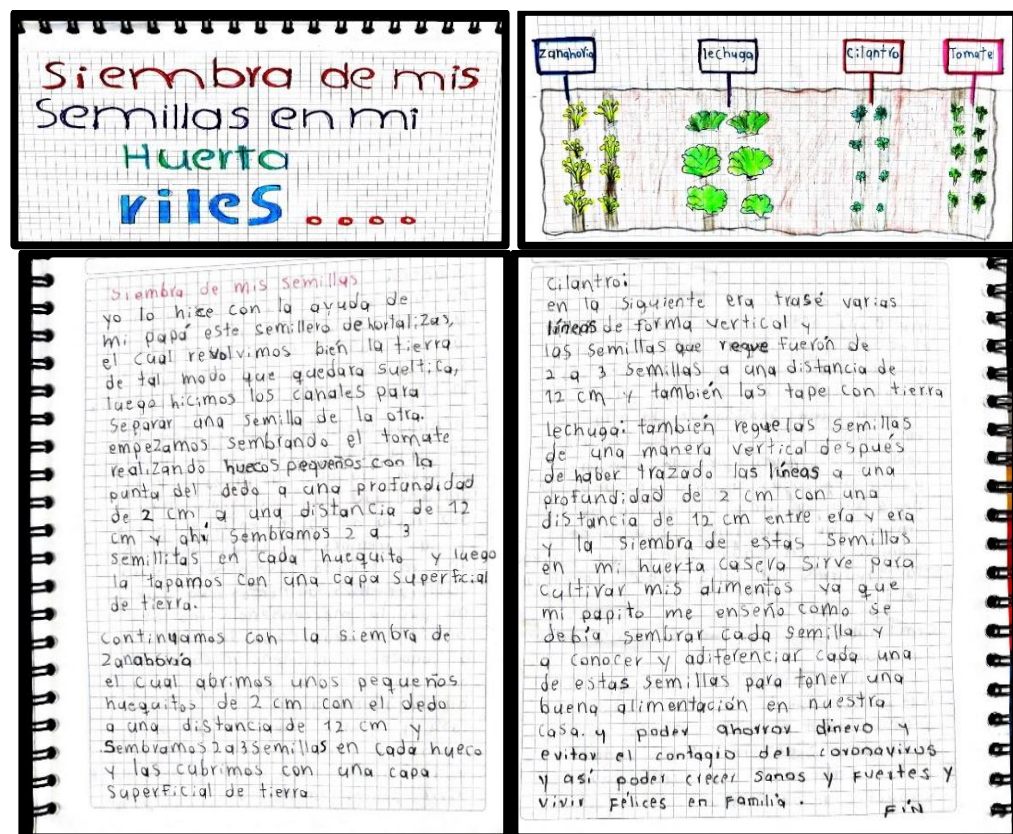 Siembra de mis
Semillas en mi
Huerta
riles....
Zanahoria
lechuga
Cilantro
Tomate
Siembra de mis semillas
yo lo hice con la ayuda de
mi papá este semillero de hortalizas,
el cual revolvimos bien la tierra
de tal modo que quedara sueltica,
luego hicimos los canales para
separar una semilla de la otra.
empezamos sembrando el tomate
realizando huecos pequeños con la
punta del dedo a una profundidad
de 2 cm a una distancia de 12
cm y ahí sembramos 2 a 3
semillitas en cada huequito y luego
la tapamos con una capa superficial
de tierra.
continuamos con la siembra de
zanahoria
el cual abrimos unos pequeños
huequitos de 2 cm con el dedo
a una distancia de 12 cm y
Sembramos 2 a 3 semillas en cada hueco
y las cubrimos con una capa
superficial de tierra.
Cilantro:
en la siguiente era trasé varias
líneas de forma vertical y
las semillas que regue fueron de
2 a 3 semillas a una distancia de
12 cm y también las tape con tierra
lechuga: también regue las semillas
de una manera vertical después
de haber trazado las líneas a una
profundidad de 2 cm con una
distancia de 12 cm entre era y era
y la siembra de estas semillas
en mi huerta casera sirve para
cultivar mis alimentos ya que
mi papito me enseño como se
debía sembrar cada semilla y
a conocer y adiferenciar cada una
de estas semillas para tener una
buena alimentación en nuestra
casa. y poder ahorrar dinero y
evitar el contagio del coronavirus
y así poder crecer sanos y fuertes y
vivir felices en familia.
FÍN